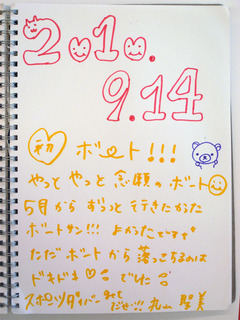 2010.
9.14
初 ボート!!!
やっと やっと 念願の ボート
5月から ずっと 行きたかった
ボートサン!!! よかったですす
ただ ボート から 落っこちるのは
ドキドキ でした
スポーツダイバー みて
ださい!! 丸山 聖美